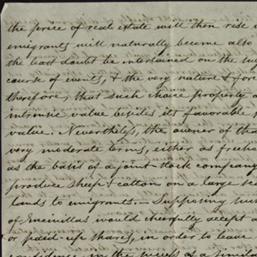 the price of real estate will then rise
emigrants will naturally become also
the least doubt be entertained on the
course of events, & the very nature &
therefore, that such choice property
intrinsic value besides its favorable
value. Nevertheless, the owner of
very moderate terms, either as
as the basis of a joint-stock company
produce sheep & cotton on a large
lands to emigrants. Supposing
of would cheerfully accept
or paid-up shares, in order to leave
in the success of a